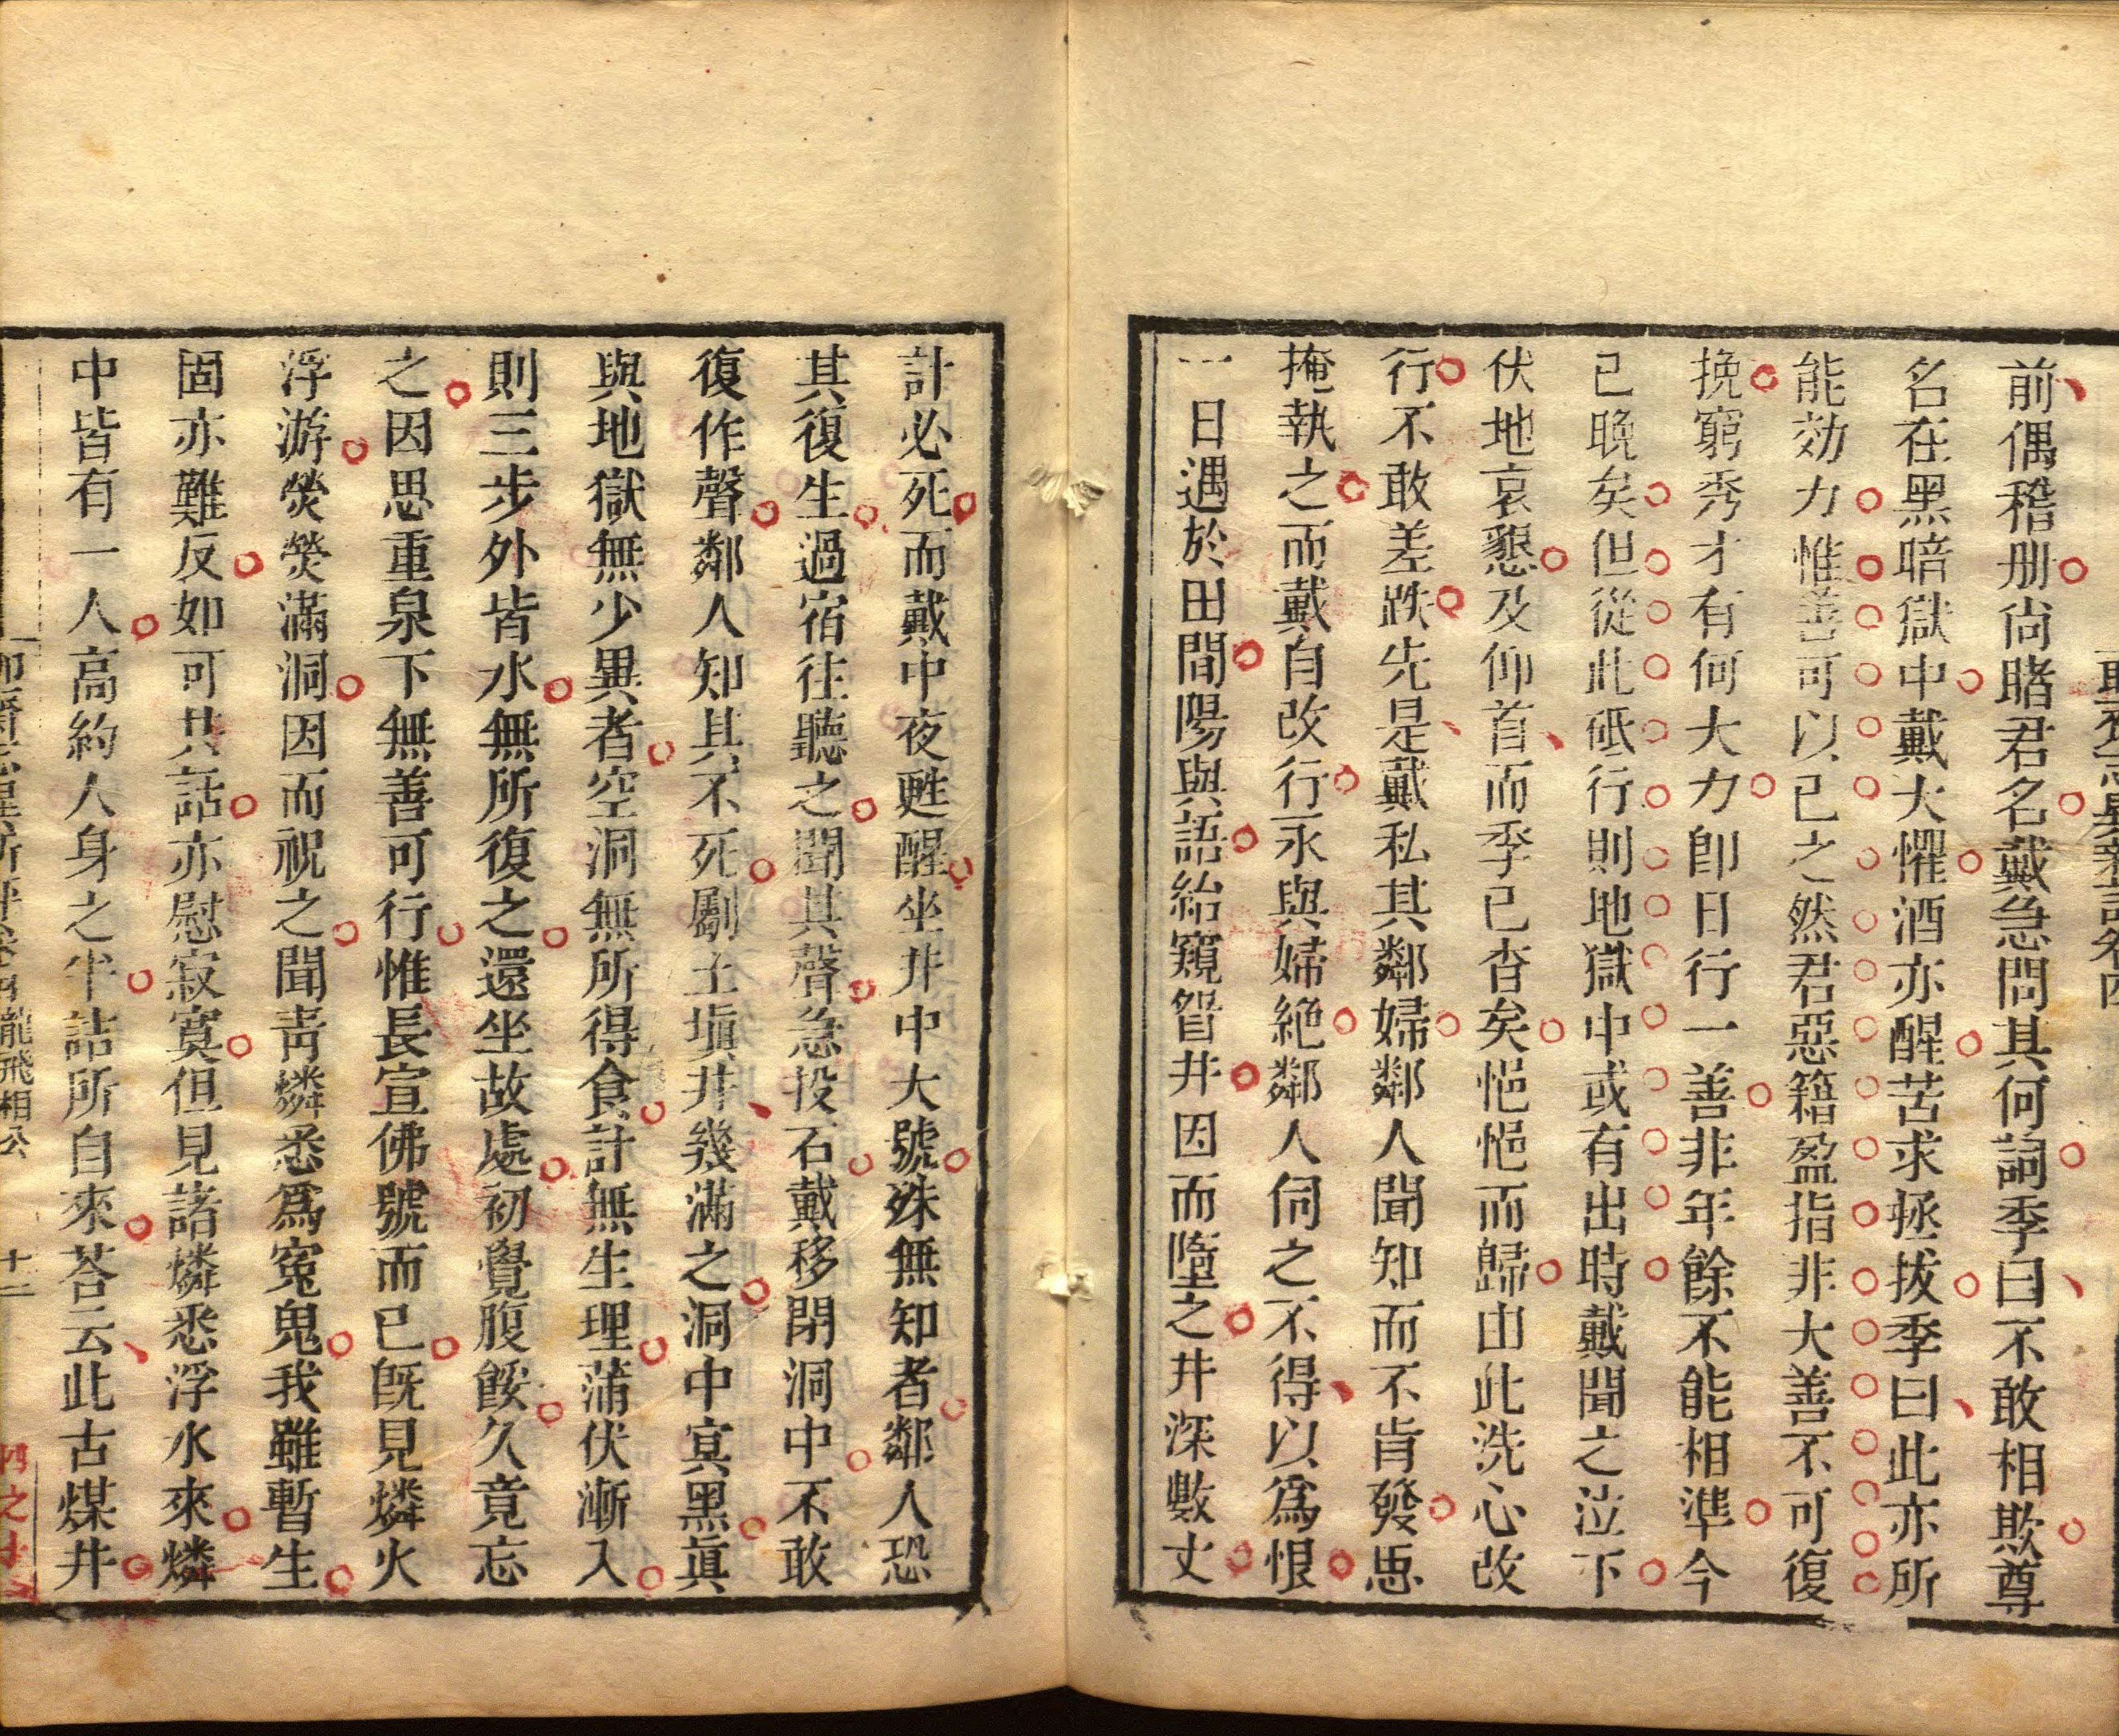 前偶稽册尙睹君名戴急問其何詞季曰不敢相欺尊
名在黑暗獄中戴大懼酒亦醒苦求拯拔季曰此亦所
能効力惟善可以已之然君惡籍盈指非大善不可復
挽窮秀才有何大力卽日行一善非年餘不能相準今
已晚矣但從此砥行則地獄中或有出時戴聞之泣下
伏地哀懇及仰首而季已杳矣悒悒而歸由此洗心改
行不敢差跌先是戴私其鄰婦鄰人聞知而不肯發思
掩執之而戴自改行永與婦絶鄰人伺之不得以爲恨
一日遇於田間陽與語紿窺眢井因而墮之井深數丈
計必死而戴中夜甦醒坐井中大號殊無知者鄰人恐
其復生過宿往聽之聞其聲急投石戴移閉洞中不敢
復作聲鄰人知其不死劚土塡井幾滿之洞中冥黑眞
與地獄無少異者空洞無所得食計無生理蒲伏漸入
則三步外皆水無所復之還坐故處初覺腹餒久竟忘
之因思重泉下無善可行惟長宣佛號而已旣見燐火
浮游熒熒滿洞因而祝之聞靑燐悉爲寃鬼我雖暫生
固亦難反如可共話亦慰寂寞但見諸燐悉浮水來燐
中皆有一人高約人身之半詰所自來荅云此古煤井
龍飛相公
十二